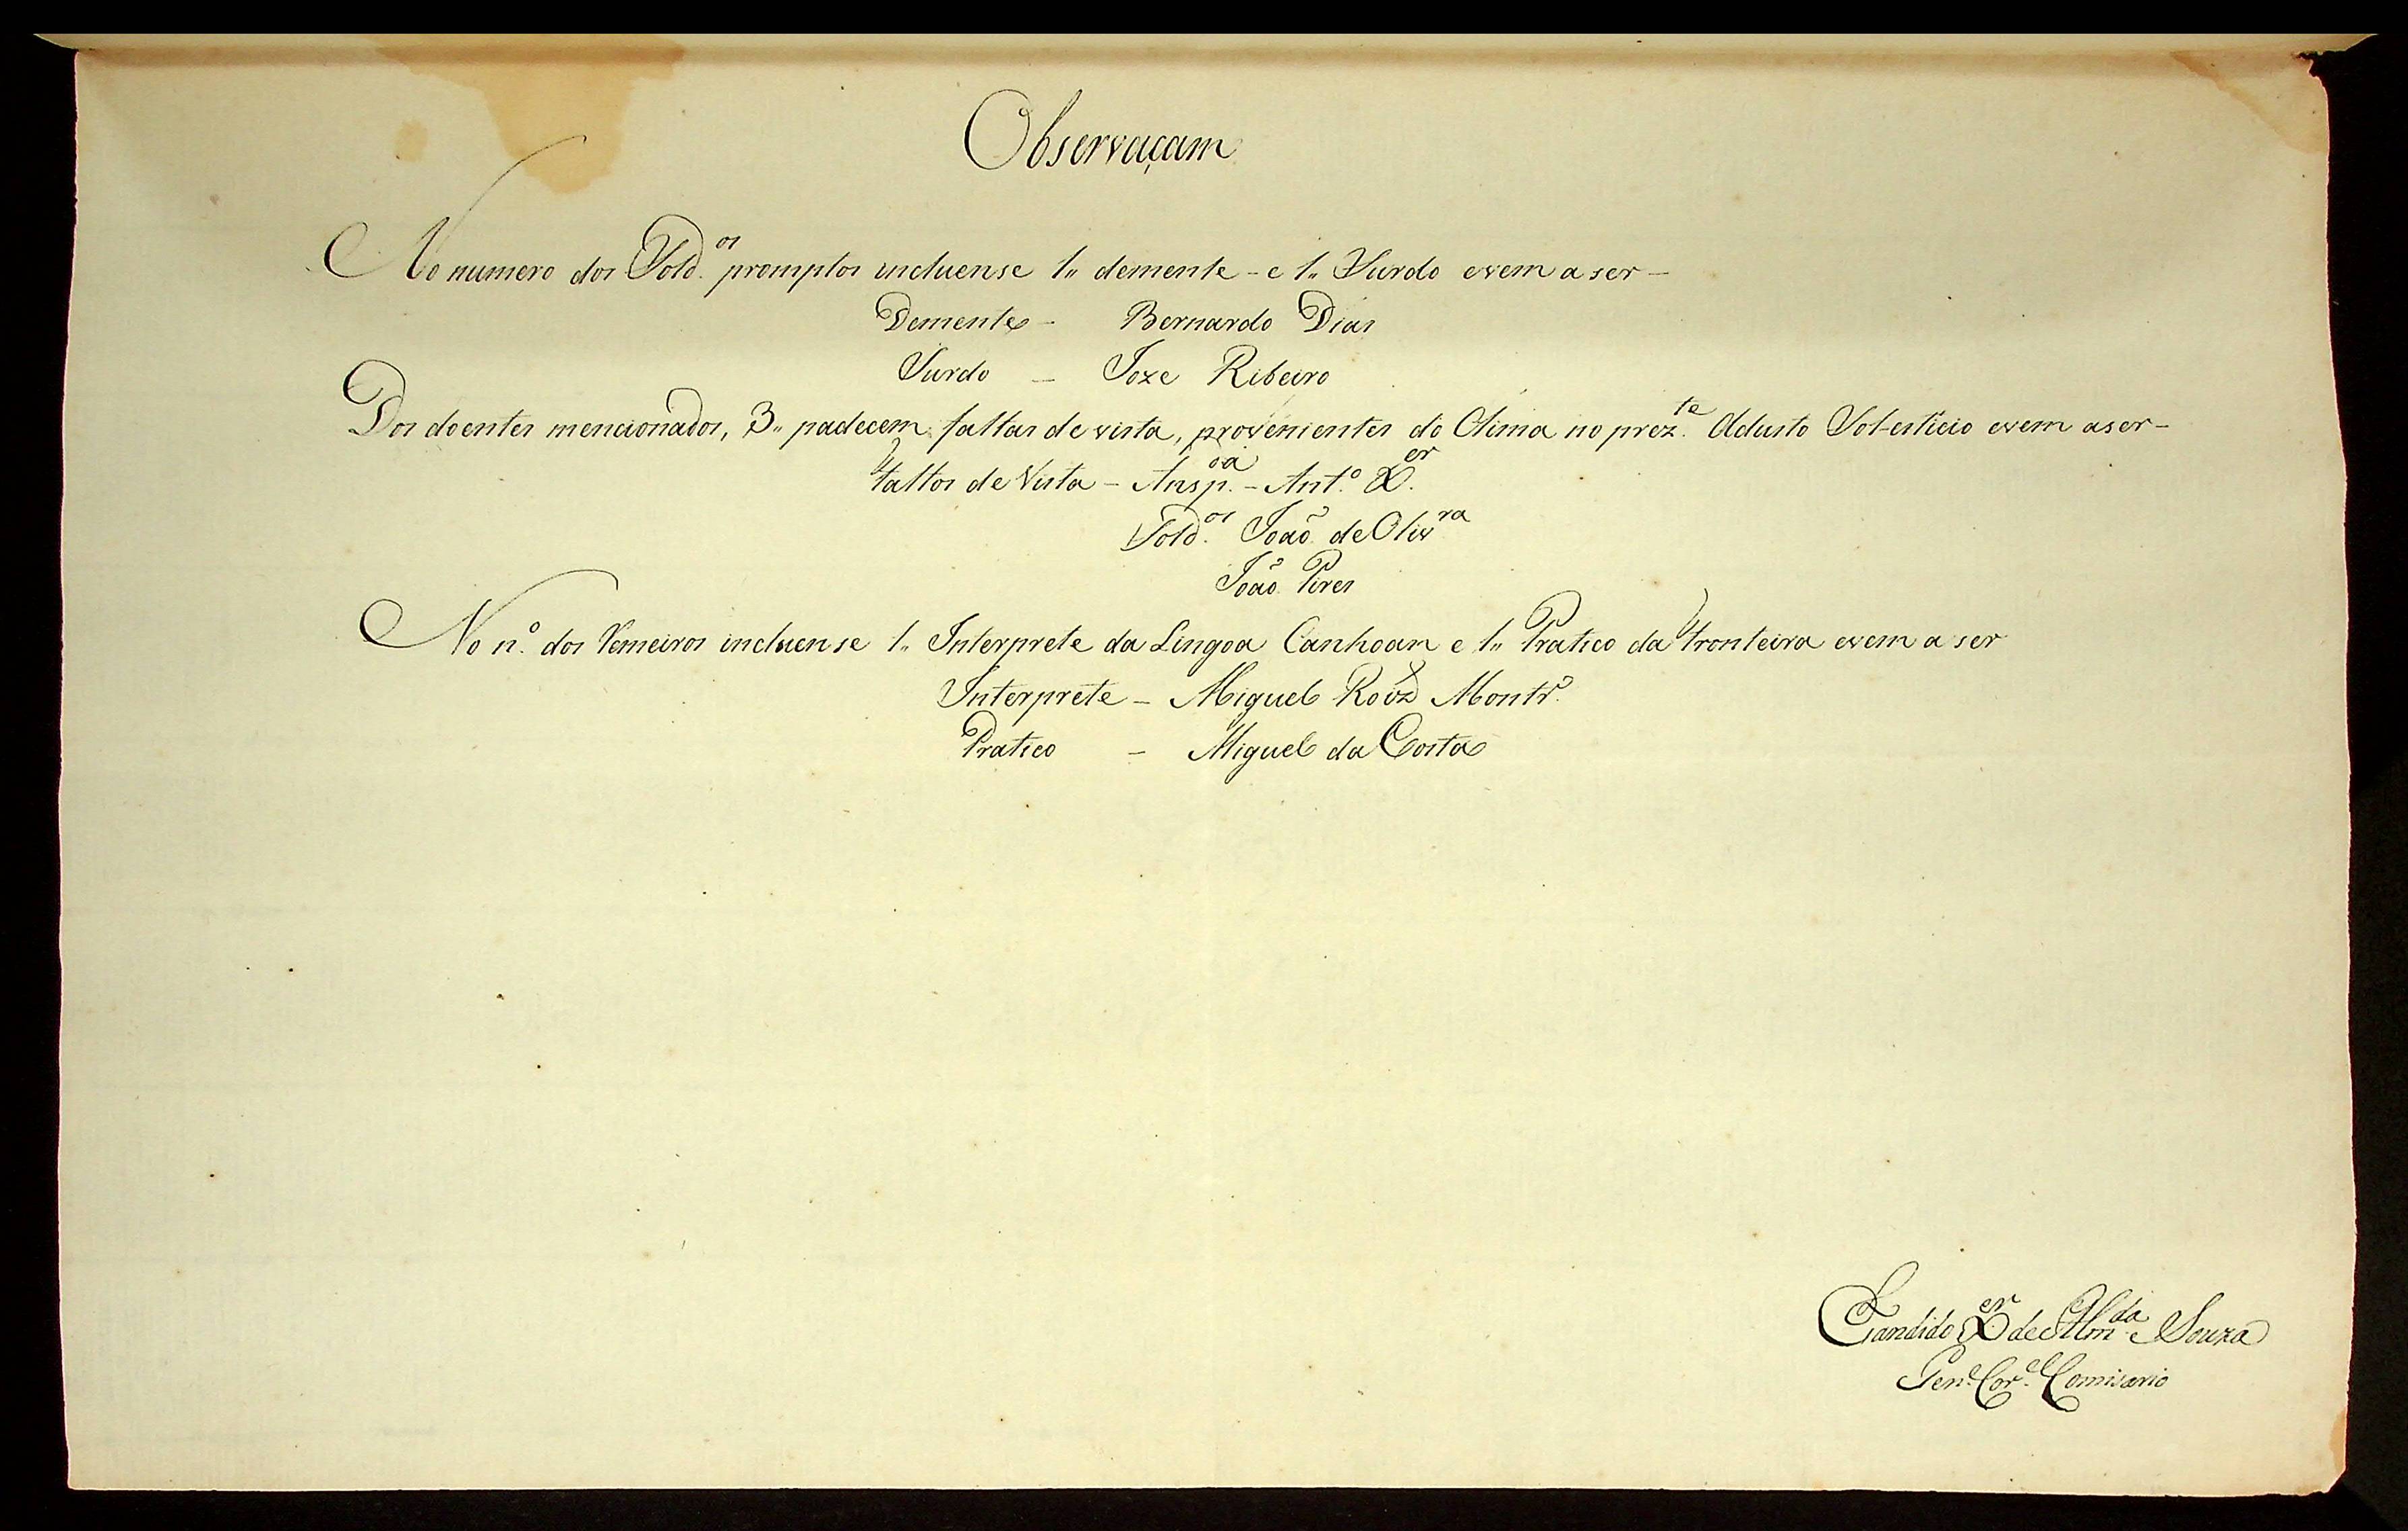 Observaçam
No numero dos Sold.os promptos incluense 1,, demente - e 1,, Surdo evem a ser -
Demente - Bernardo Dias
Surdo - Joze Ribeiro
Dos doentes mencionados, 3,, padecem faltas de vista, provenientes do Clima no prez.te Adusto Solesticio evem aser -
Faltos de Vista - Ansp.da - Ant.o X.er
Sold.os João de Olivra
João Pires
No n.o dos Remeiros incluense 1,, Interprete da Lingoa Canhoam e 1,, Pratico da Fronteira evem a ser
Interprete - Miguel Roiz Montr.o
Pratico - Miguel da Costa
Candido X.er de Alm.da e Souza
Ten.e Cor.el Comisario